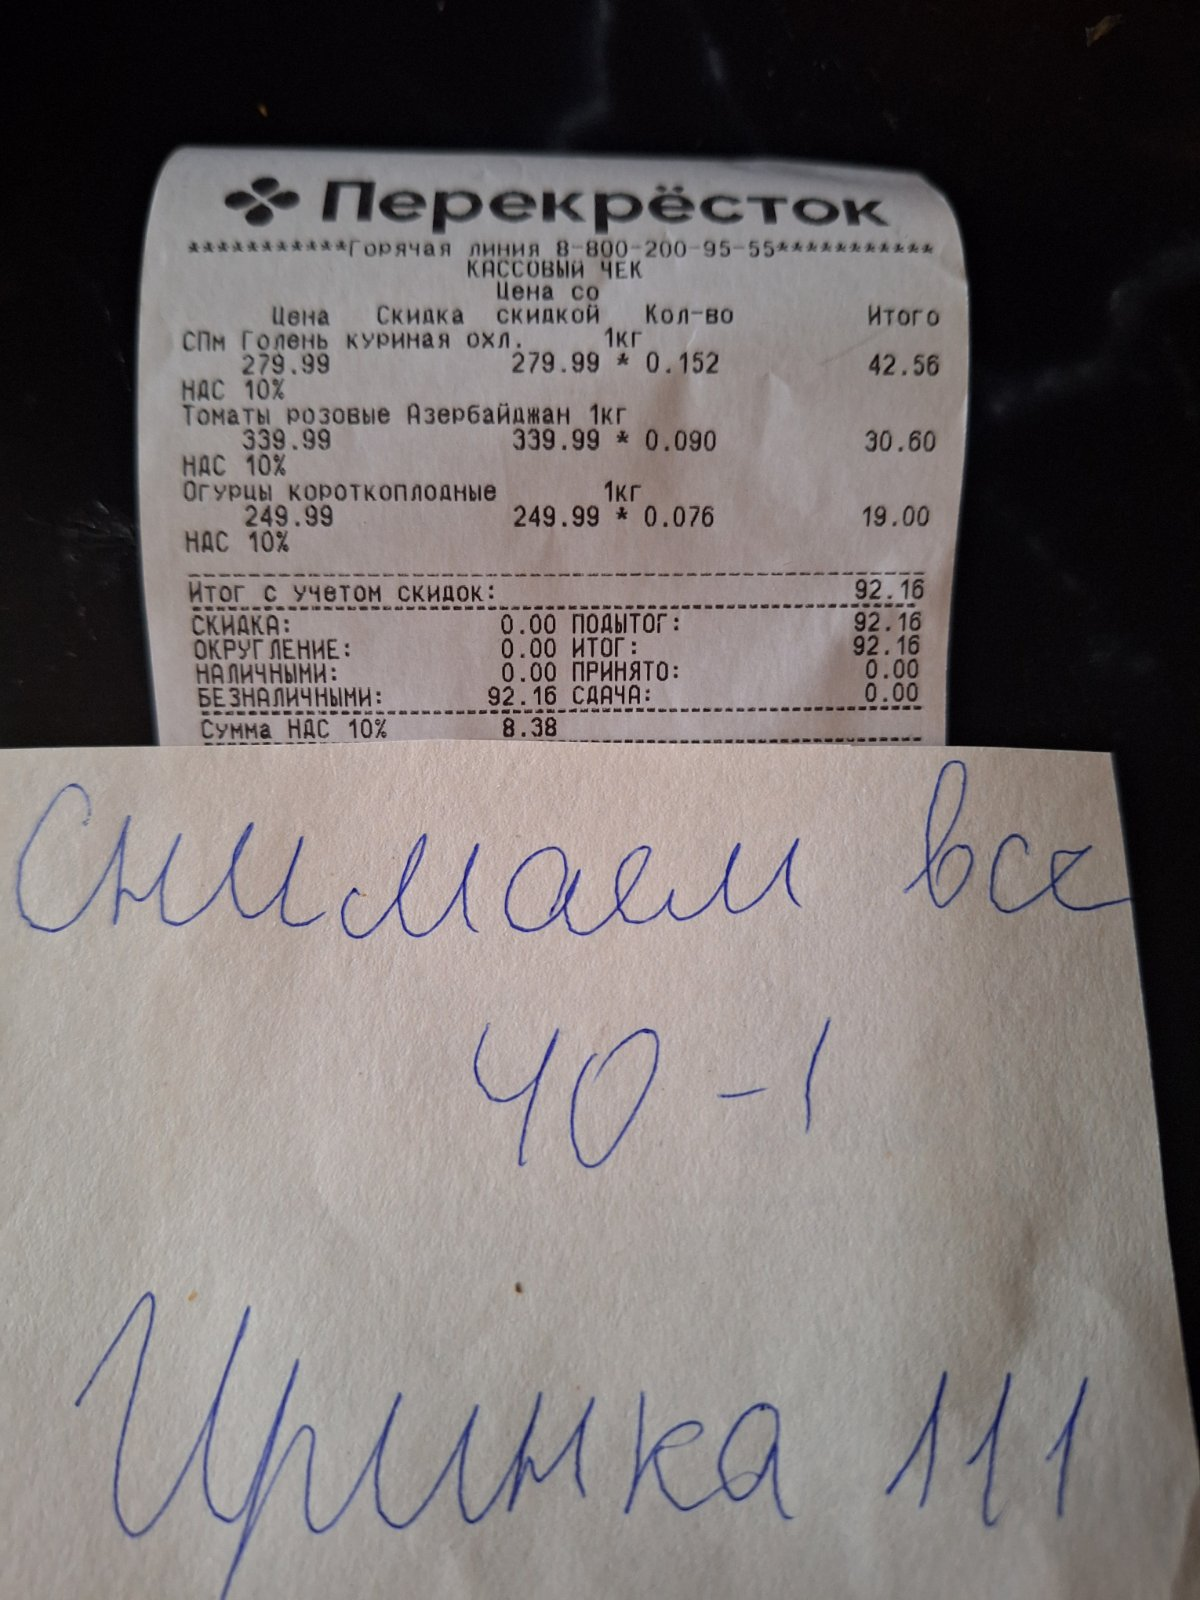 Перекрёсток
***********Горячая линия 8-800-200-95-55***********
КАССОВЫЙ ЧЕК
Цена со
Цена Скидка скидкой Кол-во Итого
СПм Голень куриная охл. 1кг
279.99 279.99 * 0.152 42.56
НДС 10%
Томаты розовые Азербайджан 1кг
339.99 339.99 * 0.090 30.60
НДС 10%
Огурцы короткоплодные 1кг
249.99 249.99 * 0.076 19.00
НДС 10%
Итог с учетом скидок: 92.16
СКИДКА: 0.00 ПОДЫТОГ: 92.16
ОКРУГЛЕНИЕ: 0.00 ИТОГ: 92.16
НАЛИЧНЫМИ: 0.00 ПРИНЯТО: 0.00
БЕЗНАЛИЧНЫМИ: 92.16 СДАЧА: 0.00
Сумма НДС 10% 8.38
Снимаем все
40-1
Иринка 111